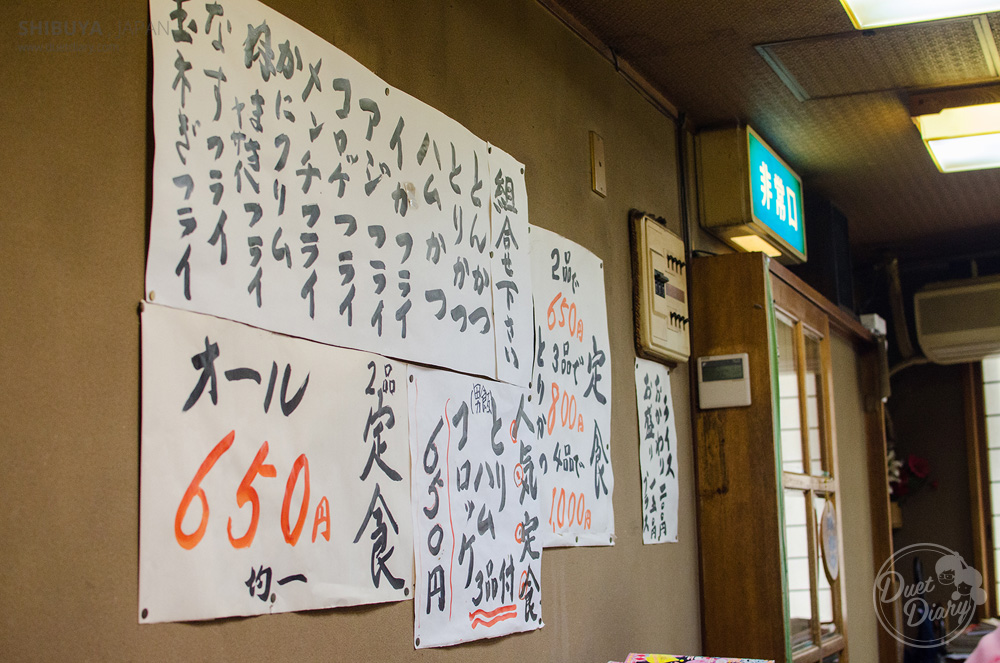 SHIBUYA, JAPAN
組合せ下さい
とんかつ
とりかつ
ハムかつ
イカフライ
アジフライ
コロッケフライ
メンチフライ
かにクリム
なすフライ
玉ネギフライ
2品定食
オール
650円
均一
人気定食
とり
ハム

コロッケ
3品付
650円
定食
2品で
650円
3品で
800円
4品で
1000円
とりかつ
ライス
おかわり
お盛り
非常口
Duet
Diary